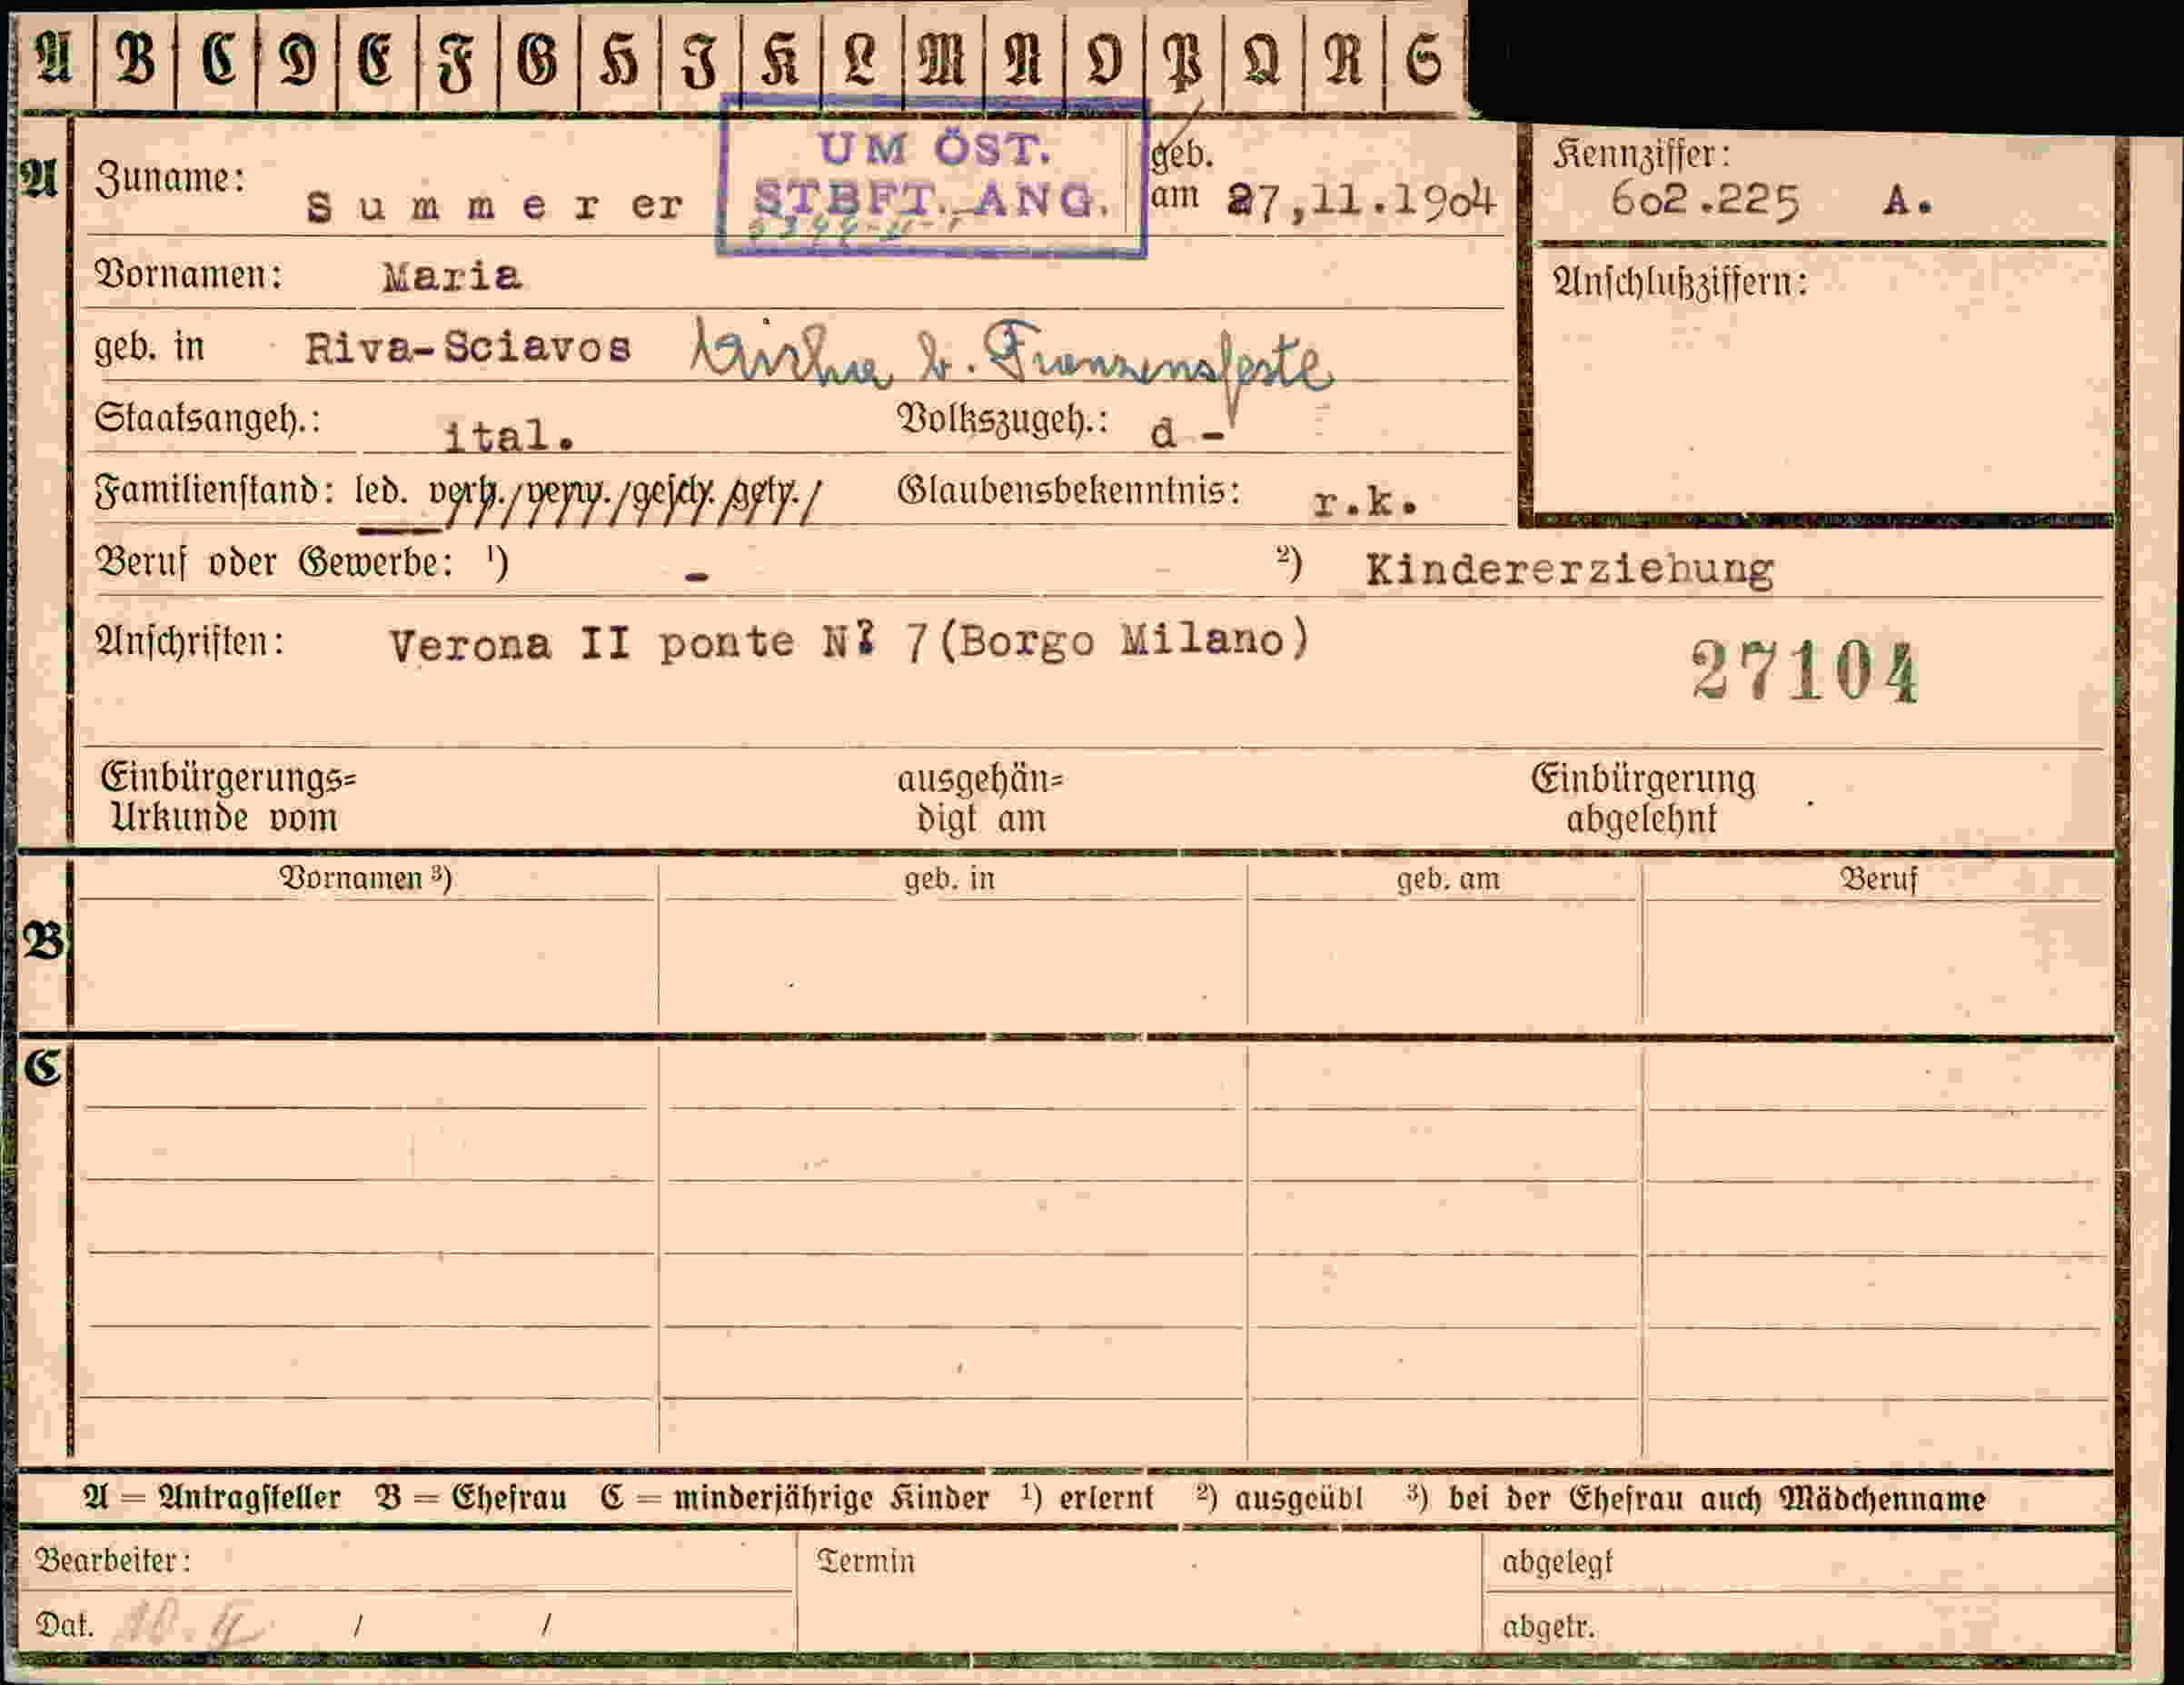 A B C D E F G H I K L M N O P Q R S
UM ÖST.
STBFT. ANG.
A
Zuname: Summerer
geb.
am 27,11.1904
Kennziffer:
602.225 A.
Vornamen: Maria
Anschlußziffern:
geb. in Riva-Sciavos b. Franzensfeste
Staatsangeh.: ital. Volkszugeh.: d -
Familienstand: led. verh./verw./gesch. getr./ Glaubensbekenntnis: r.k.
Beruf oder Gewerbe: ¹) - ²) Kindererziehung
Anschriften: Verona II ponte No 7(Borgo Milano)
27104
Einbürgerungs= ausgehän= Einbürgerung
Urkunde vom digt am abgelehnt
Vornamen ³) geb. in geb. am Beruf
B
C
A = Antragsteller B = Ehefrau C = minderjährige Kinder ¹) erlernt ²) ausgeübt ³) bei der Ehefrau auch Mädchenname
Bearbeiter: Termin abgelegt
Dat. / / abgetr.